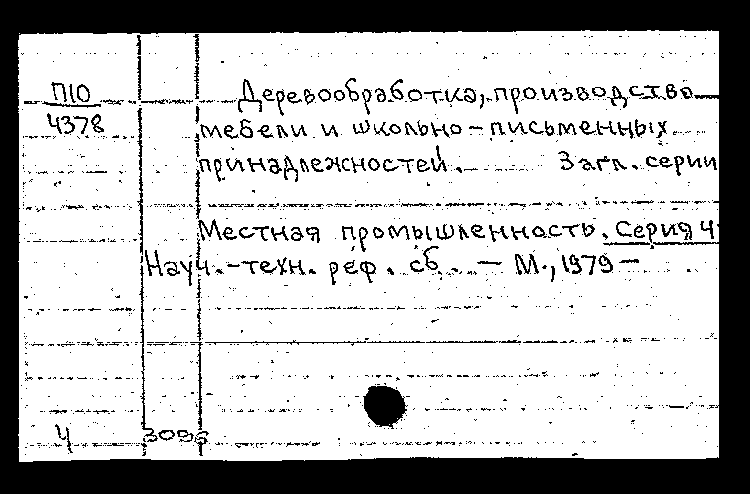 П10
4378
Деревообработка, производство
мебели и школьно-письменных
принадлежностей. Загл. серии
Местная промышленность. Серия 4
Науч.-техн. реф. сб. — М., 1979 —
Ч